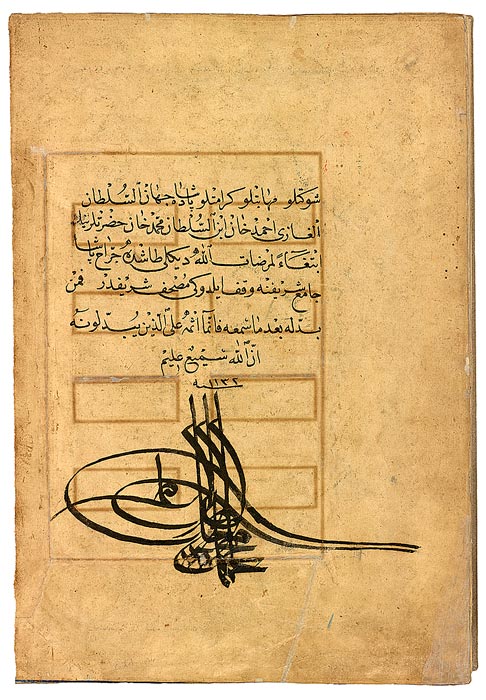 شوكتلو مهابتلو كرامتلو پادشاه جهان السلطان
الغازى احمد خان ابن السلطان محمد خان حضرتلرينك
ابتغاء لمرضات الله ديكلى طاشده جراح پاشا
جامع شريفنه وقف ايلدوكى مصحف شريفدر فمن
بدله بعد ما سمعه فانما اثمه على الذين يبدلونه
ان الله سميع عليم
سنه ١١٣٢